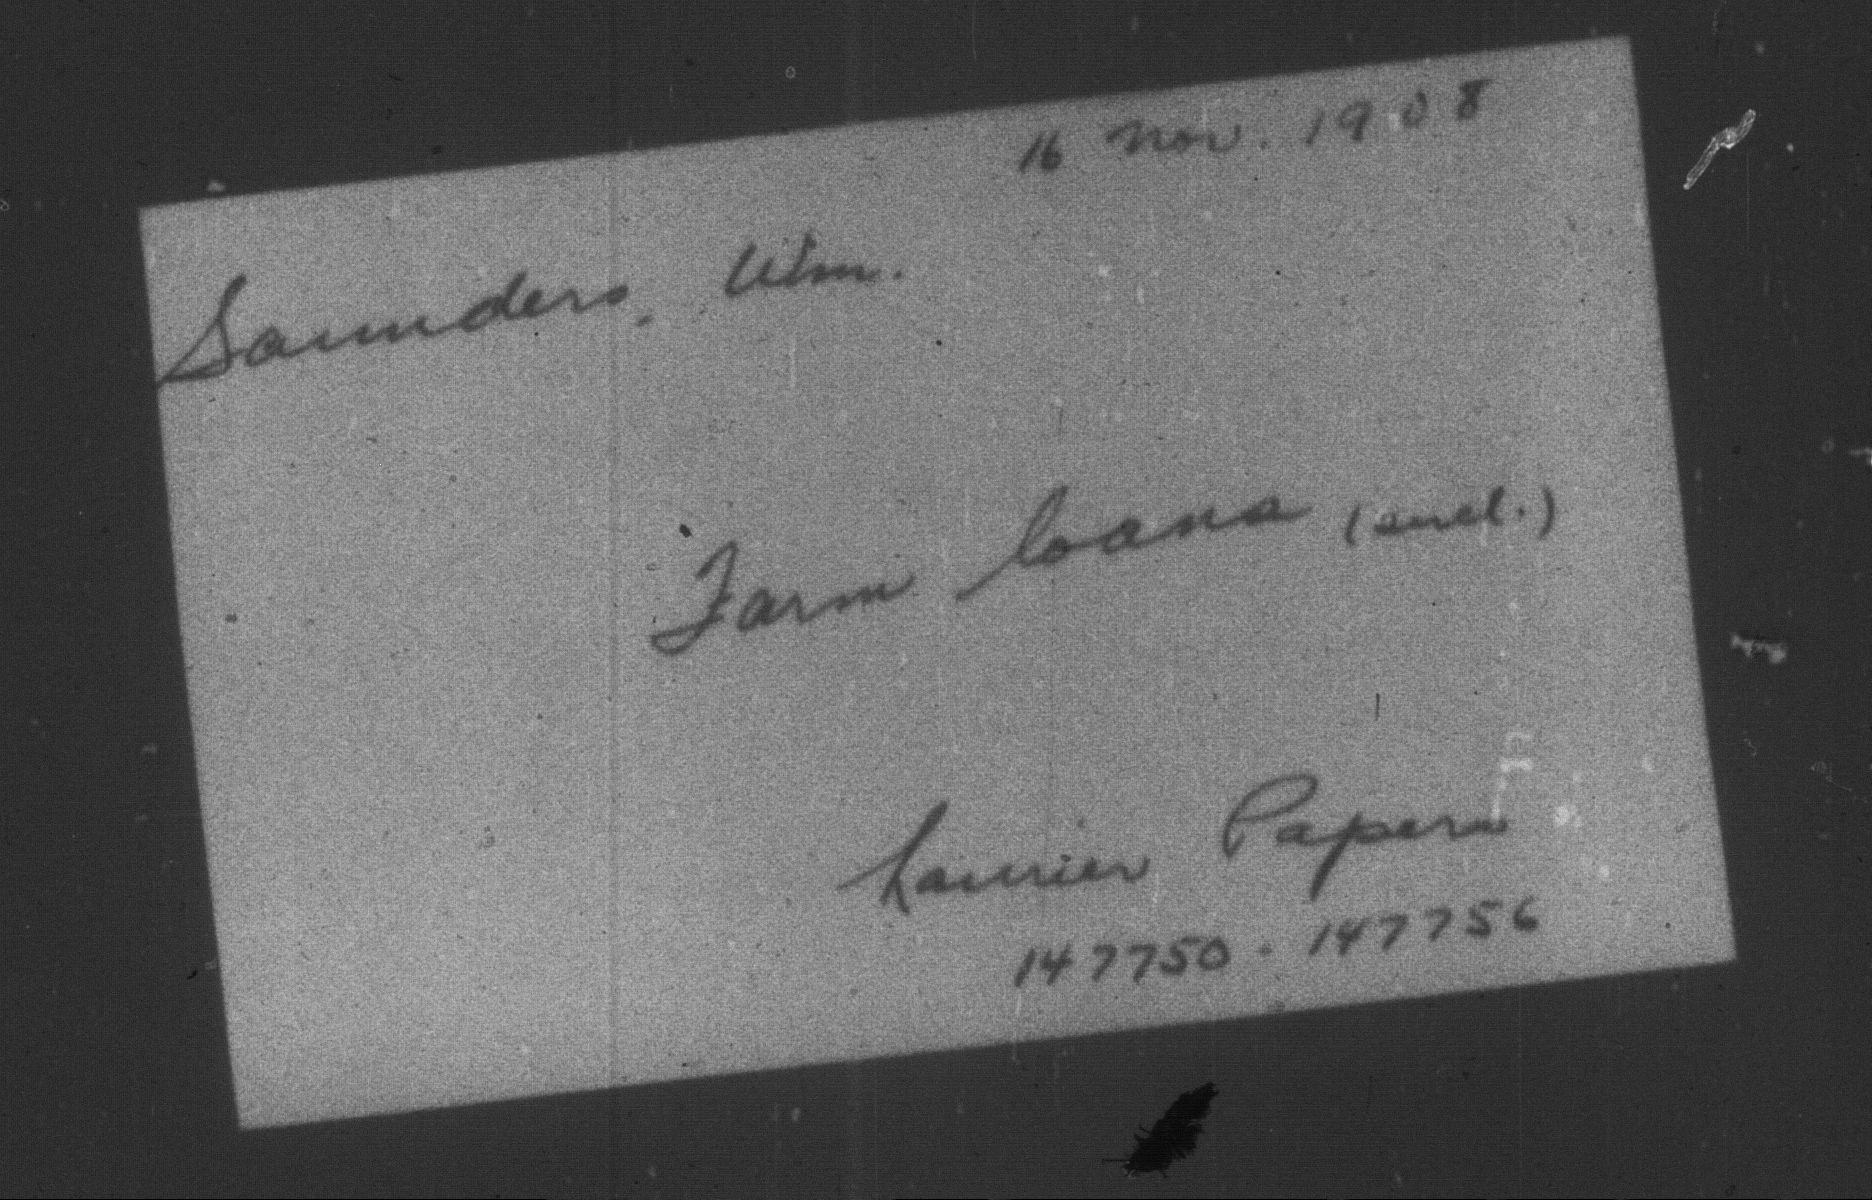 16 Nov. 1908
Saunders, Wm.
Farm loans (encl.)
Laurier Papers
147750 - 147756